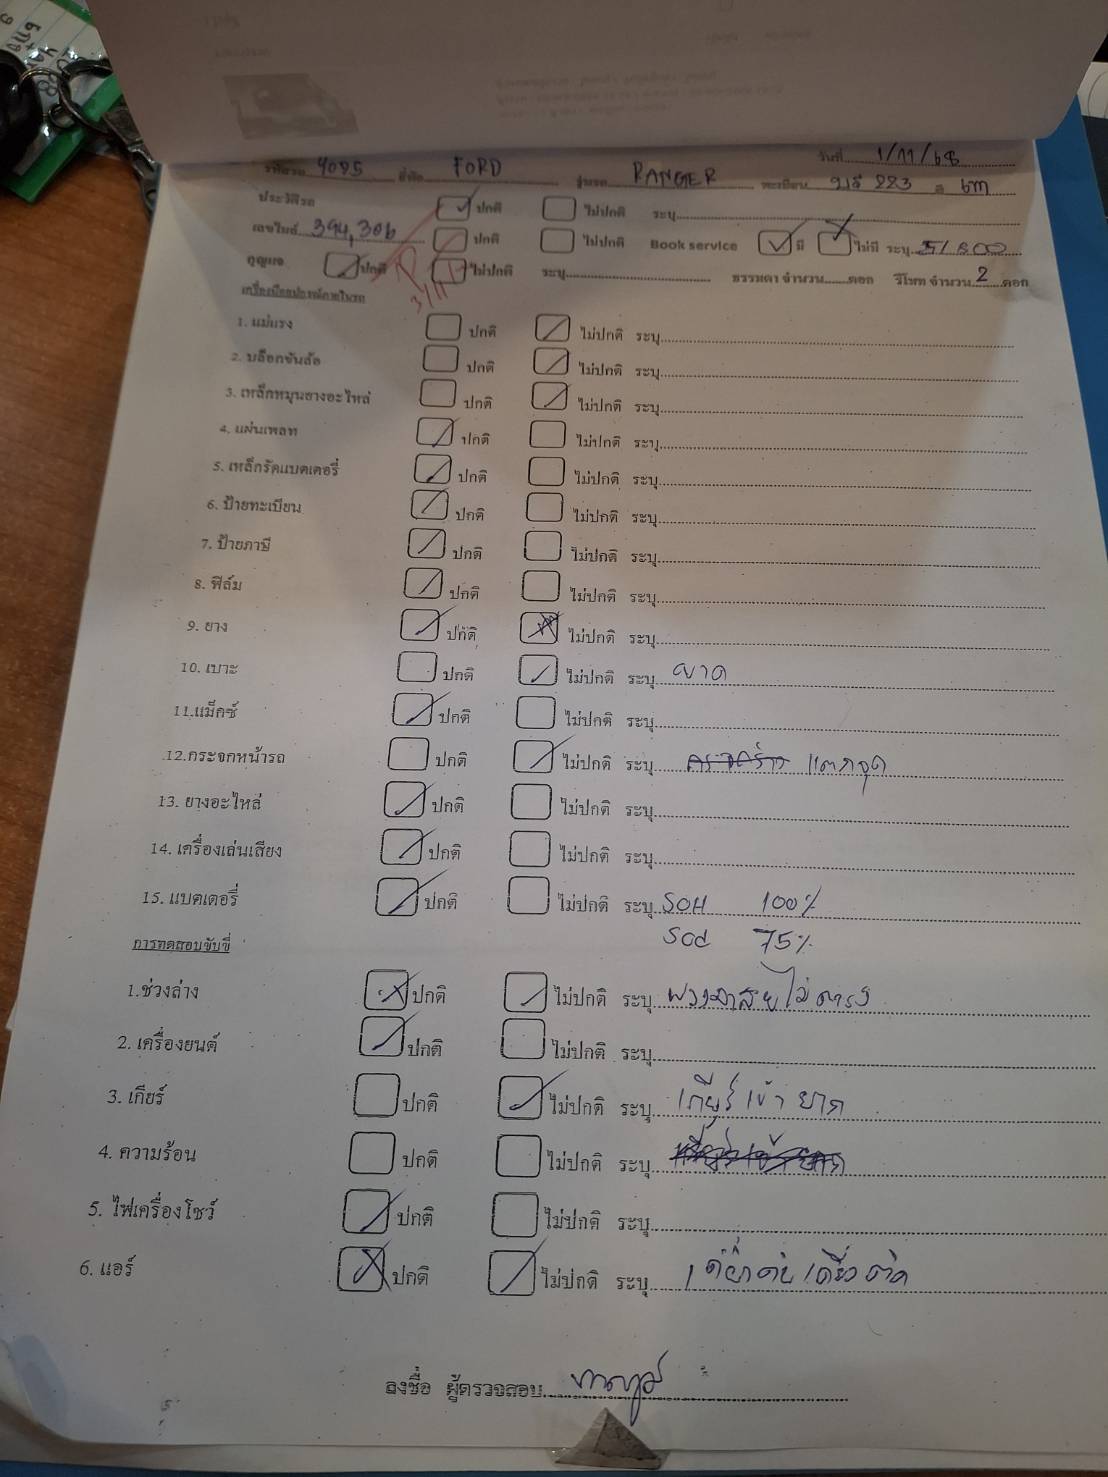 รหัสรถ 4095 ยี่ห้อ FORD รุ่นรถ RANGER ทะเบียน 223 วันที่ 1/11/68
ประวัติรถ ปกติ ไม่ปกติ ระบุ
เลขไมล์ 394,306 ปกติ ไม่ปกติ Book service มี ไม่มี ระบุ
กุญแจ ปกติ ไม่ปกติ ระบุ ธรรมดา จำนวน ดอก รีโมท จำนวน 2 ดอก
เครื่องมือและอุปกรณ์ภายในรถ
1. แม่แรง ปกติ ไม่ปกติ ระบุ
2. บล็อกขันล้อ ปกติ ไม่ปกติ ระบุ
3. เหล็กหมุนยางอะไหล่ ปกติ ไม่ปกติ ระบุ
4. แผ่นเพลท ปกติ ไม่ปกติ ระบุ
5. เหล็กรัดแบตเตอรี่ ปกติ ไม่ปกติ ระบุ
6. ป้ายทะเบียน ปกติ ไม่ปกติ ระบุ
7. ป้ายภาษี ปกติ ไม่ปกติ ระบุ
8. ฟิล์ม ปกติ ไม่ปกติ ระบุ
9. ยาง ปกติ ไม่ปกติ ระบุ
10. เบาะ ปกติ ไม่ปกติ ระบุ ขาด
11.แม็กซ์ ปกติ ไม่ปกติ ระบุ
12.กระจกหน้ารถ ปกติ ไม่ปกติ ระบุ แตกจุด
13. ยางอะไหล่ ปกติ ไม่ปกติ ระบุ
14. เครื่องเล่นเสียง ปกติ ไม่ปกติ ระบุ
15. แบตเตอรี่ ปกติ ไม่ปกติ ระบุ SOH 100%
SOC 75%
การทดสอบขับขี่
1.ช่วงล่าง ปกติ ไม่ปกติ ระบุ พวงมาลัยไม่ตรง
2. เครื่องยนต์ ปกติ ไม่ปกติ ระบุ
3. เกียร์ ปกติ ไม่ปกติ ระบุ เกียร์เข้ายาก
4. ความร้อน ปกติ ไม่ปกติ ระบุ
5. ไฟเครื่องโชว์ ปกติ ไม่ปกติ ระบุ
6. แอร์ ปกติ ไม่ปกติ ระบุ
ลงชื่อ ผู้ตรวจสอบ